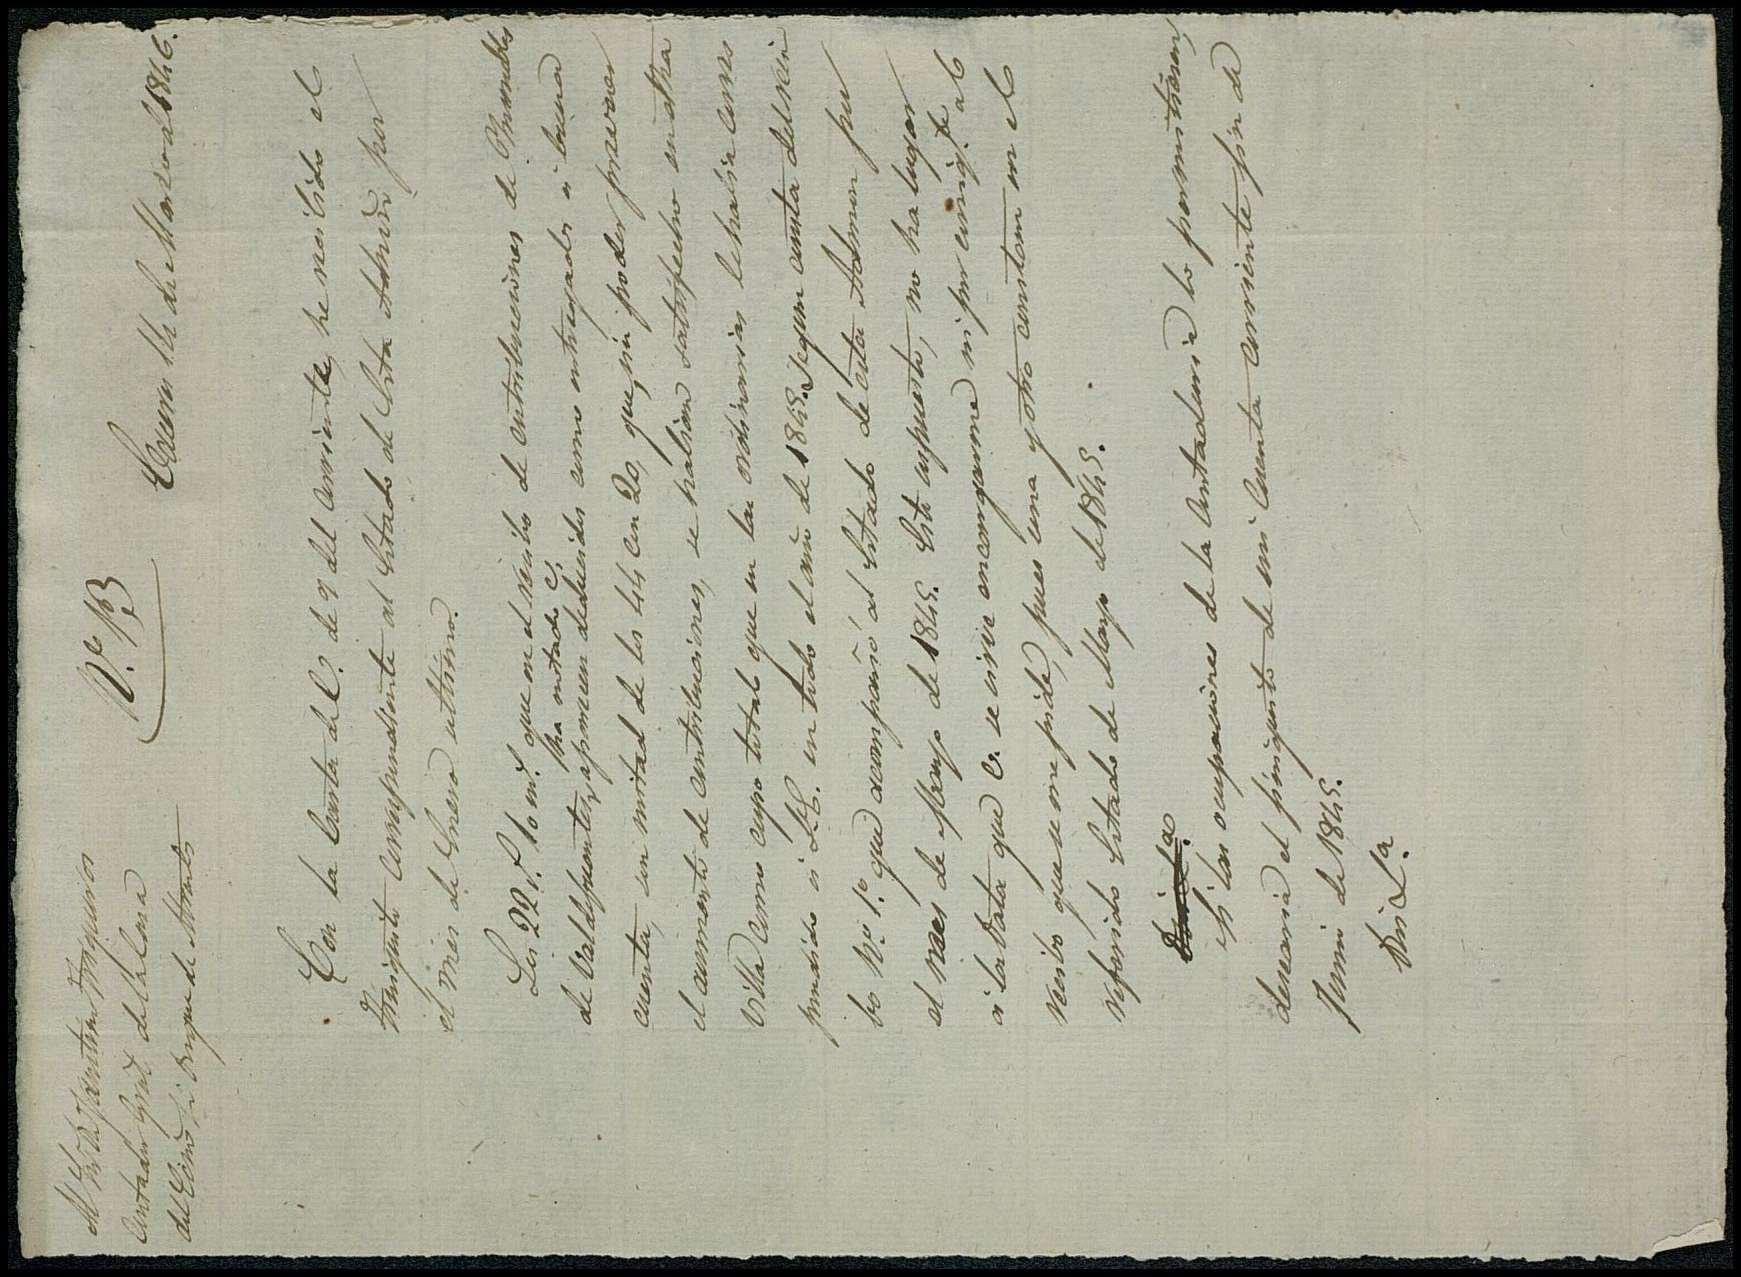 Al Sr. Dn. Santiago
Contador Gral. de la Casa
del Excmo. Sr. Duque de
Vº Bº
14 de Marzo de 1846.
Con la Carta de V. de 9 del corriente, he recibido el
finiquito correspondiente al Estado de esta Admon. por
el mes de Enero último.
Los 22 r. 10 mrs. que en el recibo de contribuciones de Inmuebles
de Valdefuentes, ha notado V. aparecen deducidos como entregados a buena
cuenta, son mitad de los 44 con 20, que, sin poder preveer
el aumento de contribuciones, se habian satisfecho en otra
Villa como cupo total que en las ordinarias le habia corres
pondido a S.E. en todo el año de 1845, segun consta del reci
bo Nº 1º que acompañó al Estado de esta Admon. por
el mes de Mayo de 1845. En este supuesto, no ha lugar
a la data que V. se sirve encargarme ni por consigte. al
recibo que se me pide, pues uno y otro constan en el
referido Estado de Mayo de 1845.
Si las ocupaciones de la Contaduria lo permitiesen,
desearia el finiquito de mi cuenta corriente fin de
Junio de 1845.
Dios &a.